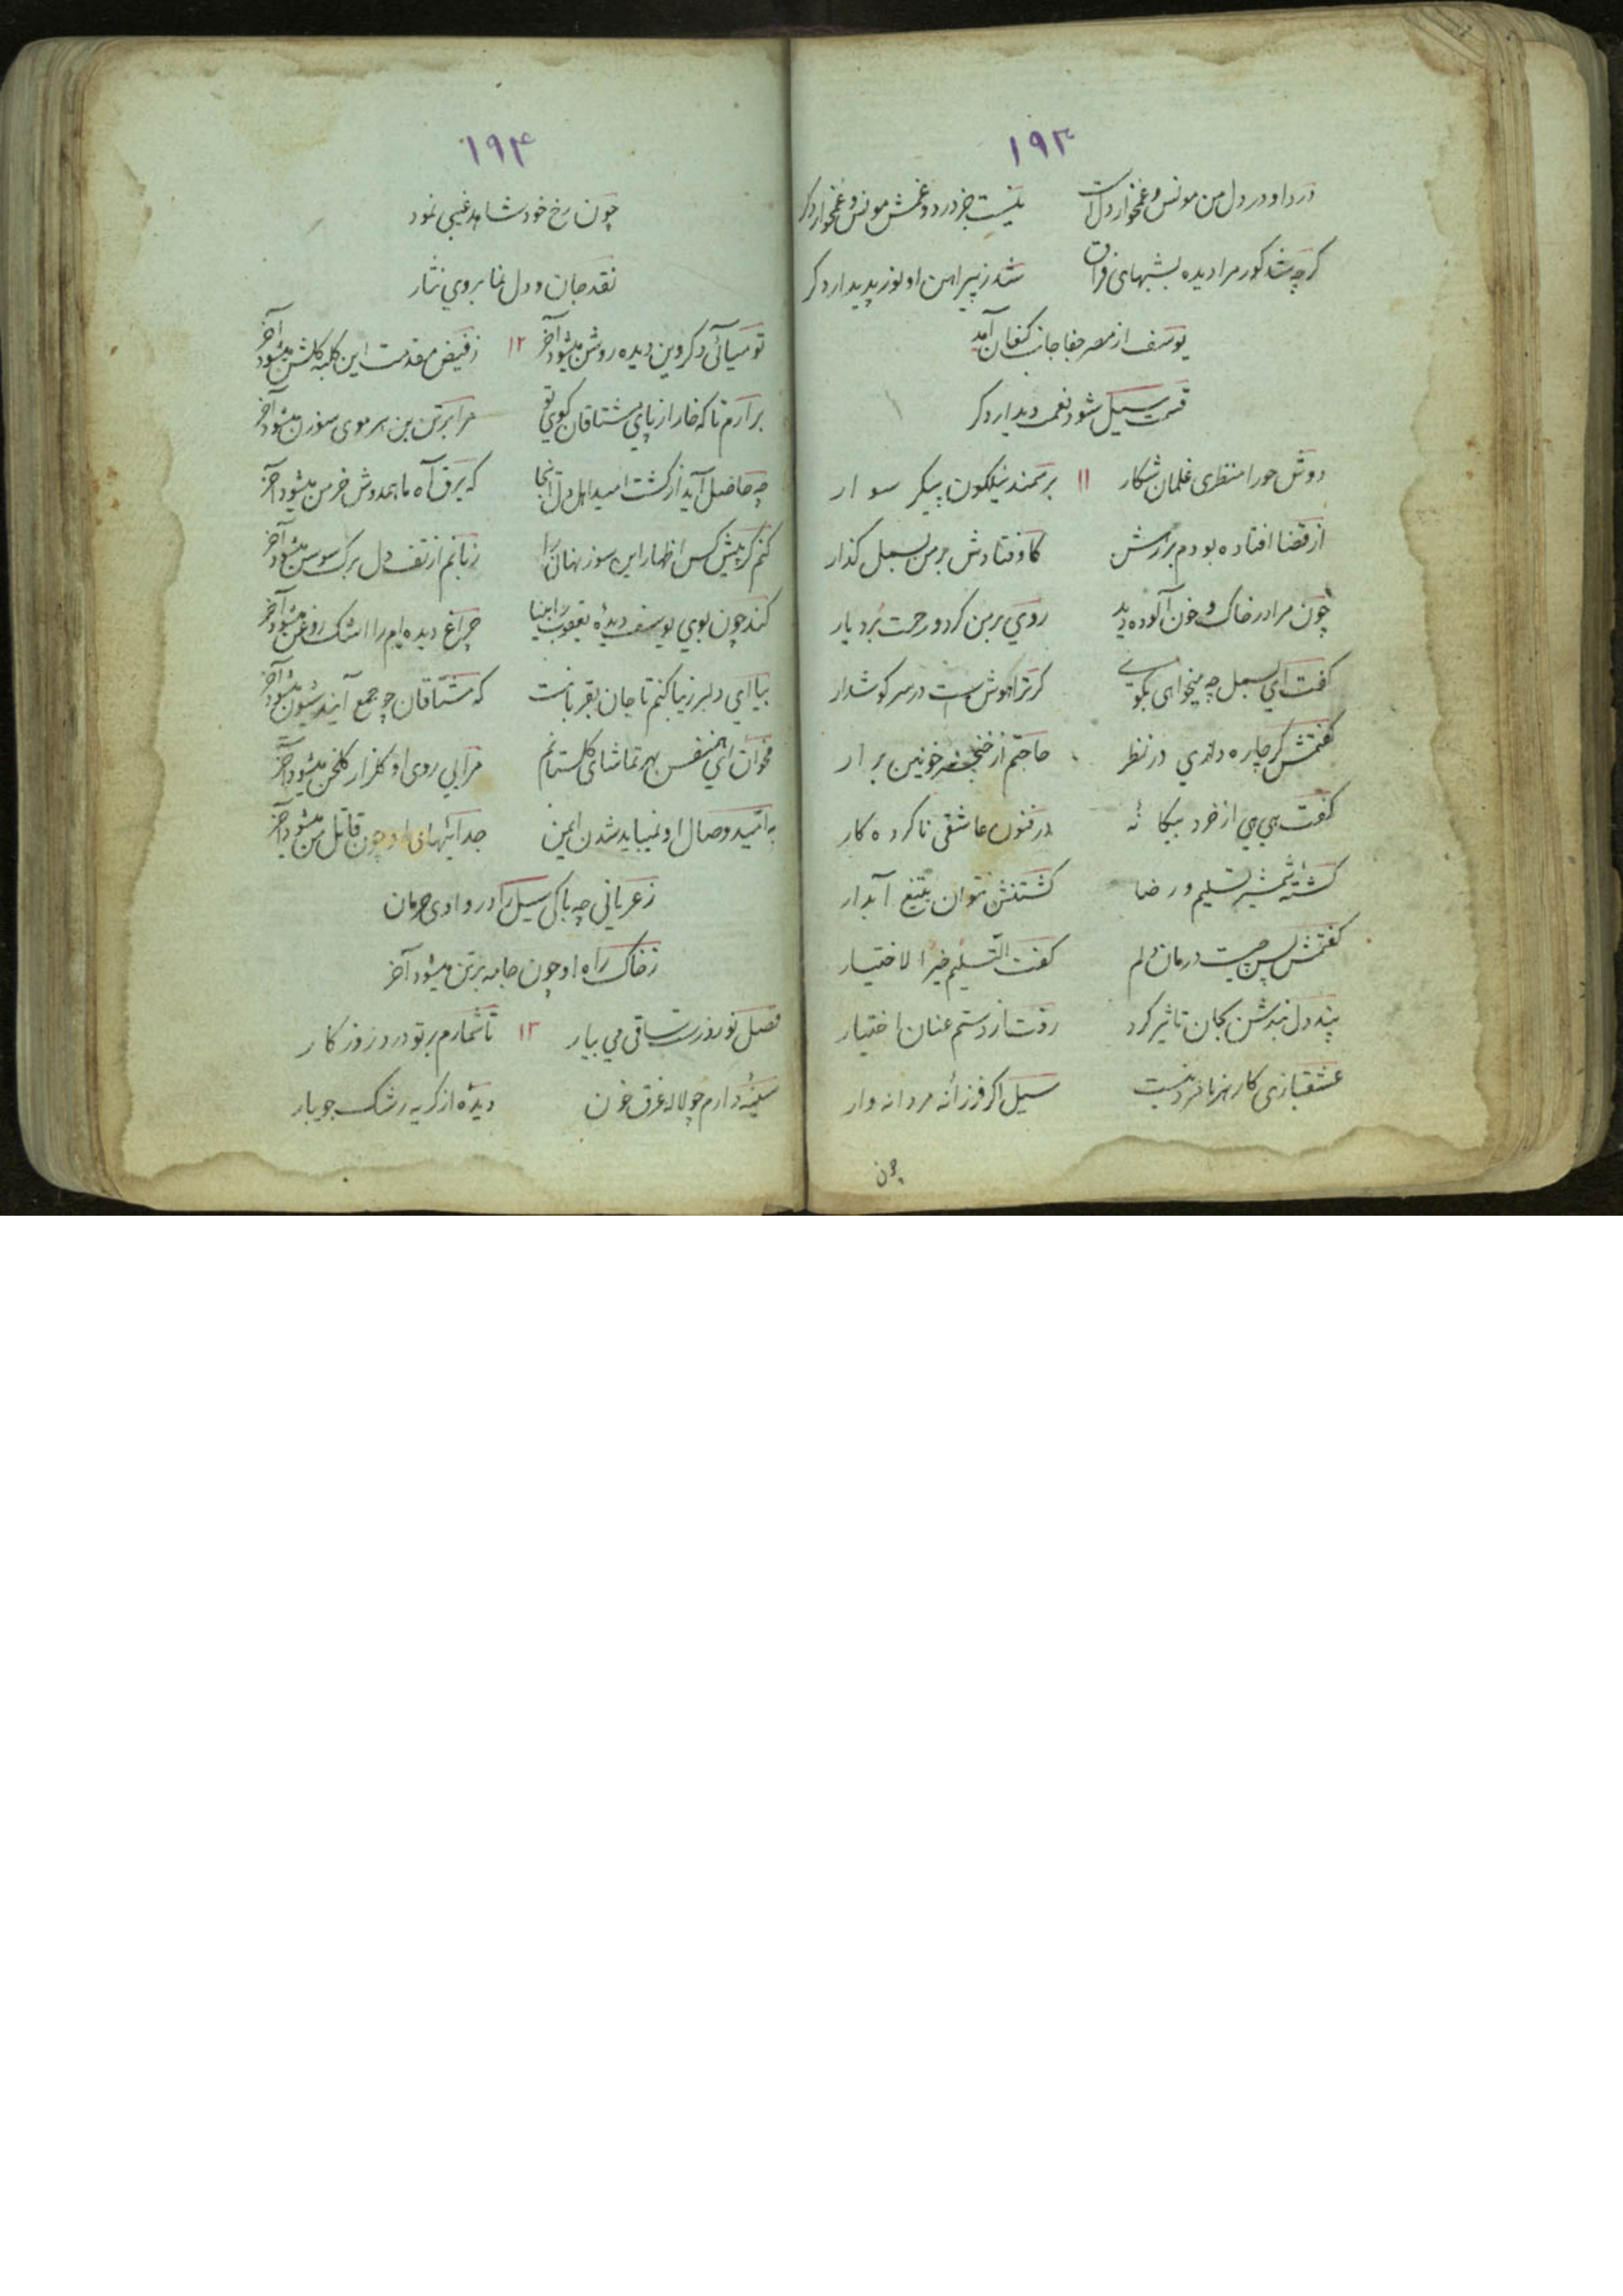 ۱۹۳
درد او در دل من مونس و غمخوار دل است نیست جز درد و غمش مونس و غمخوار دکر
کرچه شد کور مرا دیده بشبهای فراق شد ز پیراهن او نور پدیدار دکر
یوسف از مصر جفا جانب کنعان آمد
قسمت سیل شود نعمت دیدار دکر
دوش حورا منظری غلمان شکار ۱۱ بر سمند نیلکون پیکر سوار
از قضا افتاده بودم بر رهش کاوفتادش بر من بسمل کذار
چون مرا در خاک و خون آلوده دید روی بر من کرد و رحمت برد یار
کفت ای بسمل چه میخواهی بکوی کر ترا هوش است در سر کوشدار
کفتمش کر چاره داری در نظر حاجتم از خنجر خونین برار
کفت هی هی از خرد بیکانهٔ در فنون عاشقی ناکرده کار
کشتهٔ شمشیر تسلیم و رضا کشتنش نتوان بتیغ آبدار
کفتمش پس چیست درمان دلم کفت التسلیم خیر الاختیار
پند دل بندش بجان تاثیر کرد رفت از دستم عنان اختیار
عشقبازی کار هر نامرد نیست سیل اکر فرزانه مردانه وار
چون
۱۹۴
چون رخ خود شاهد غیبی نمود
نقد جان و دل نما بروی نثار
تو میآئی دکر وین دیده روشن میشود آخر ۱۲ ز فیض مقدمت این کلبه کلشن میشود آخر
برآرم تا که خار از پای مشتاقان کوی تو مرا بر تن بن هر موی سوزن میشود آخر
چه حاصل آید از کشت امید اهل دل آنجا که برق آه ما همدوش خرمن میشود آخر
کنم کر پیش کس اظهار این سوز نهان را زبانم از تف دل برک سوسن میشود آخر
کند چون بوی یوسف دیدهٔ یعقوب را بینا چراغ دیده‌ام را اشک روغن میشود آخر
بیا ای دلبر زیبا کنم تا جان بقربانت که مشتاقان چو جمع آیند شیون میشود آخر
مخوان ای همنفس بهر تماشای کلستانم مرا بی روی او کلزار کلخن میشود آخر
به امید وصال او نمیباید شدن ایمن جدائیهای او چون قاتل من میشود آخر
ز عریانی چه باکی سیل را در وادی حرمان
ز خاک راه او چون جامه بر تن میشود آخر
فصل نوروز است ساقی می بیار ۱۳ تا شمارم بر تو درد روزکار
سینهٔ دارم چو لاله غرق خون دیده از کریه رشک جویبار